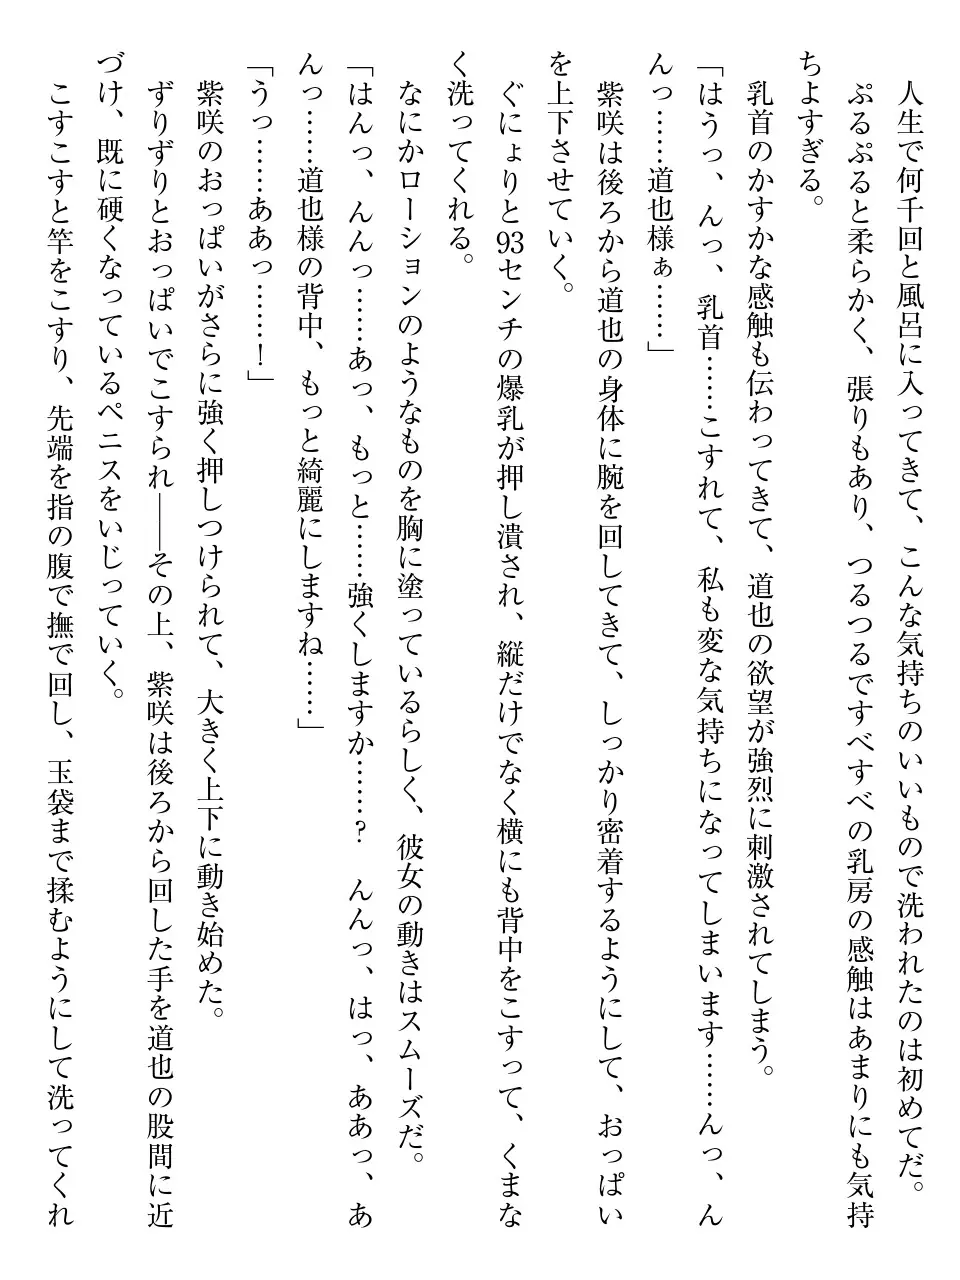 人生で何千回と風呂に入ってきて、こんな気持ちのいいもので洗われたのは初めてだ。
ぷるぷると柔らかく、張りもあり、つるつるですべすべの乳房の感触はあまりにも気持
ちよすぎる。
乳首のかすかな感触も伝わってきて、道也の欲望が強烈に刺激されてしまう。
「はうっ、んっ、乳首……こすれて、私も変な気持ちになってしまいます……んっ、ん
んっ……道也様ぁ……」
紫咲は後ろから道也の身体に腕を回してきて、しっかり密着するようにして、おっぱい
を上下させていく。
ぐにょりと93センチの爆乳が押し潰され、縦だけでなく横にも背中をこすって、くまな
く洗ってくれる。
なにかローションのようなものを胸に塗っているらしく、彼女の動きはスムーズだ。
「はんっ、んんっ……あっ、もっと……強くしますか……？　んんっ、はっ、ああっ、あ
んっ……道也様の背中、もっと綺麗にしますね……」
「うっ……ああっ……！」
紫咲のおっぱいがさらに強く押しつけられて、大きく上下に動き始めた。
ずりずりとおっぱいでこすられ――その上、紫咲は後ろから回した手を道也の股間に近
づけ、既に硬くなっているペニスをいじっていく。
こすこすと竿をこすり、先端を指の腹で撫で回し、玉袋まで揉むようにして洗ってくれ